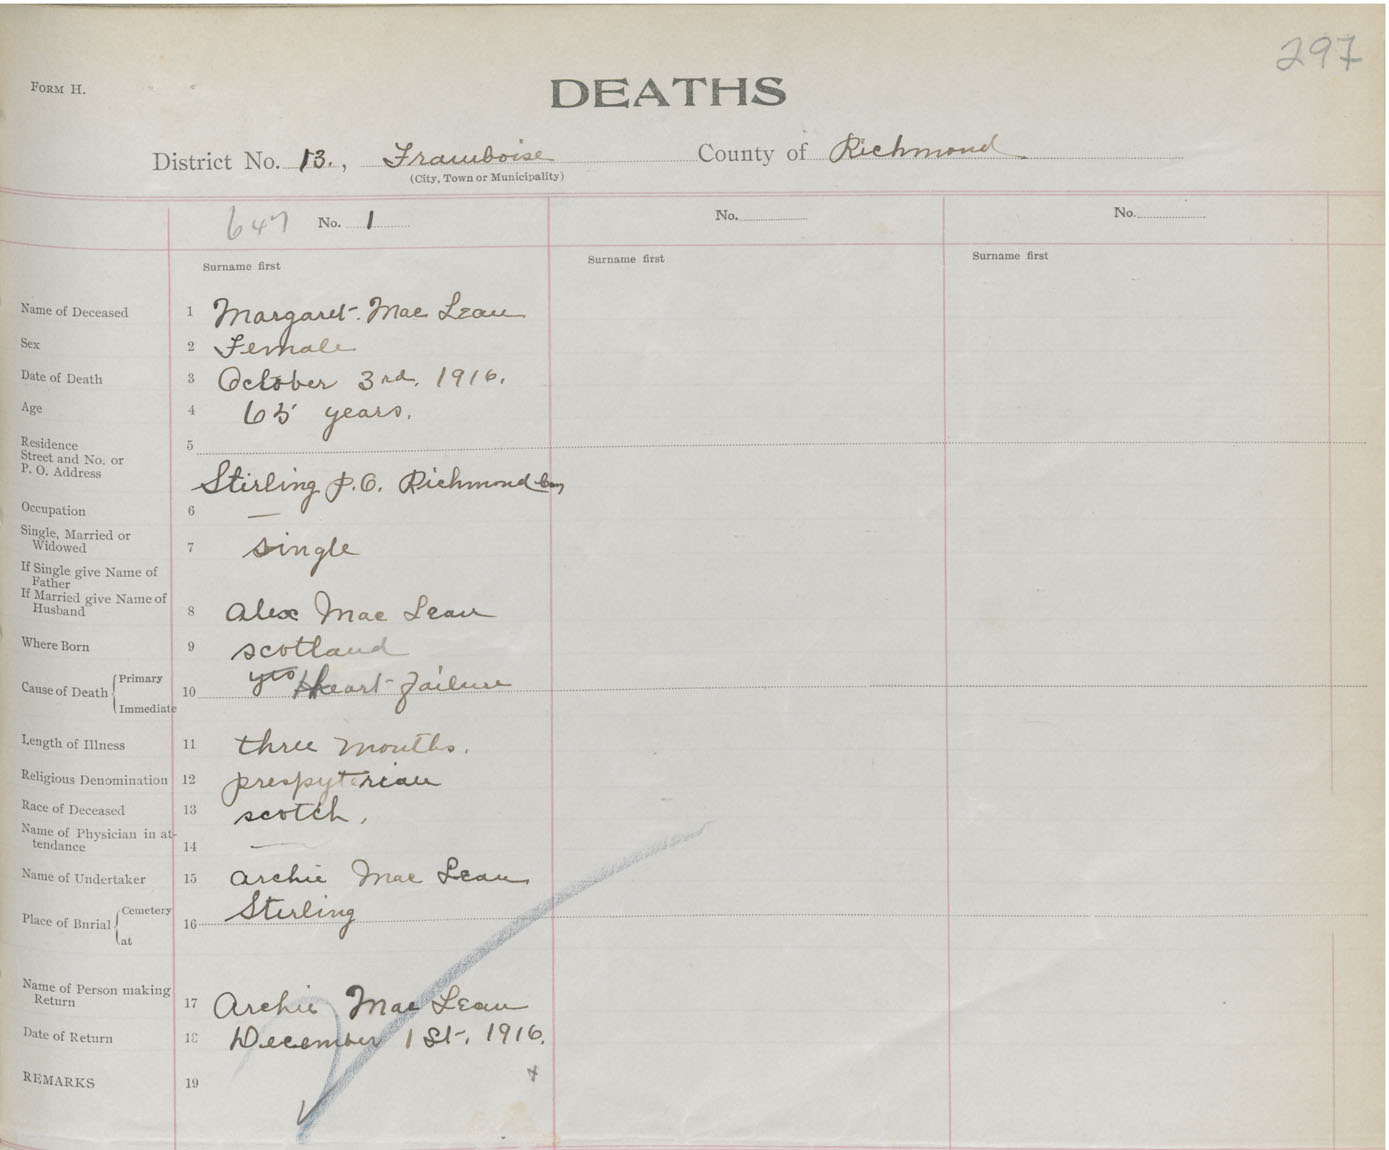 297
FORM H.
DEATHS
District No. 13., Framboise County of Richmond
(City, Town or Municipality)
647 No. 1 No. No.
Surname first Surname first Surname first
Name of Deceased 1 Margaret. Mac Lean
Sex 2 Female
Date of Death 3 October 3rd, 1916.
Age 4 65 years.
Residence 5
Street and No. or
P. O. Address
Stirling P.O. Richmond Co
Occupation 6 —
Single, Married or
Widowed 7 single
If Single give Name of
Father
If Married give Name of
Husband 8 Alex Mac Lean
Where Born 9 scotland
Cause of Death { Primary
10 Heart failure
Immediate
Length of Illness 11 three months.
Religious Denomination 12 prespyterian
Race of Deceased 13 scotch,
Name of Physician in at-
tendance 14 —
Name of Undertaker 15 archie Mac Lean
Place of Burial { Cemetery
16 Sterling
at
Name of Person making
Return 17 Archie Mac Lean
Date of Return 18 December 1 St, 1916.
REMARKS 19